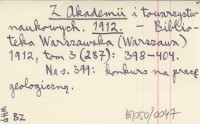 Z Akademii i towarzystw
naukowych. 1912. Biblio-
teka Warszawska (Warszawa)
1912, tom 3 (287): 398-404.
Na s. 399: konkurs na pracę
geologiczną.
BZ